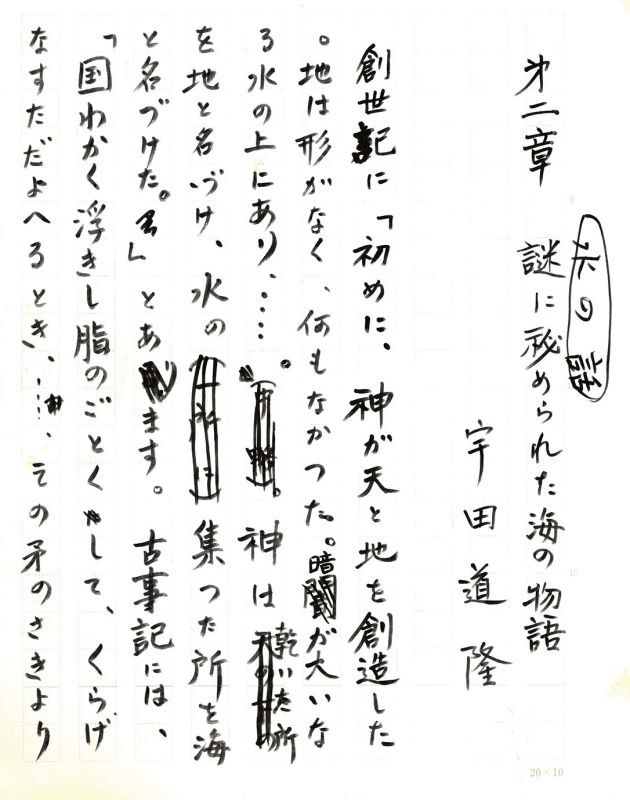 水の話
第二章　謎に秘められた海の物語
宇田道隆
創世記に「初めに、神が天と地を創造した
。地は形がなく、何もなかった。暗闇が大いな
る水の上にあり、……。神は乾いた所
を地と名づけ、水の集った所を海
と名づけた。」とあります。古事記には、
「国わかく浮きし脂のごとくして、くらげ
なすただよへるとき、……、その矛のさきより
20×10